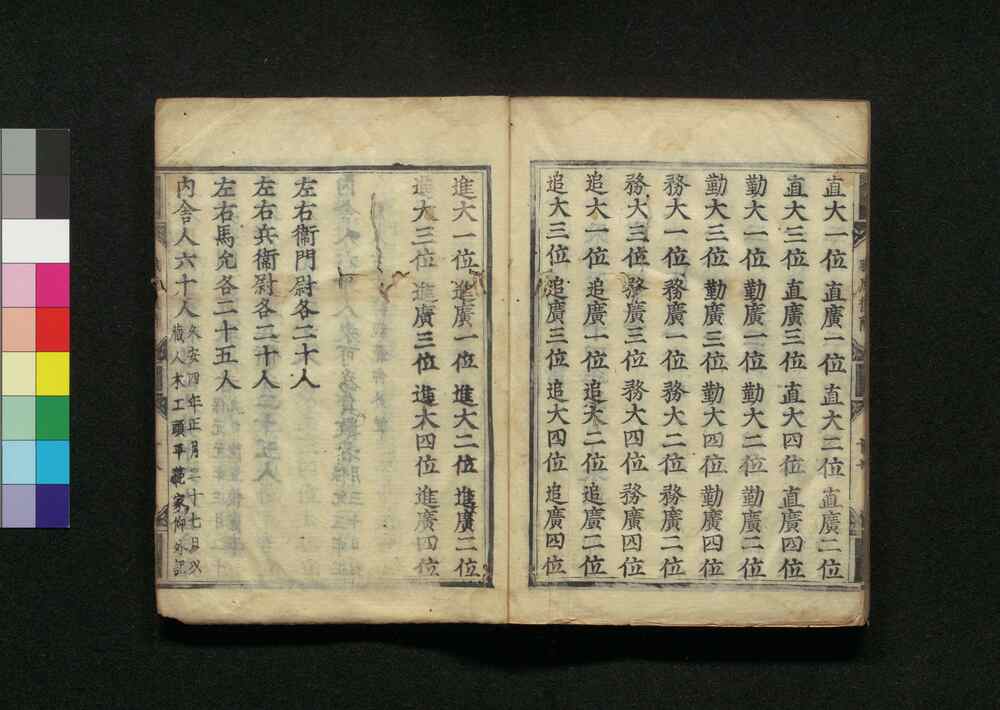 直大一位 直廣一位 直大二位 直廣二位
直大三位 直廣三位 直大四位 直廣四位
勤大一位 勤廣一位 勤大二位 勤廣二位
勤大三位 勤廣三位 勤大四位 勤廣四位
務大一位 務廣一位 務大二位 務廣二位
務大三位 務廣三位 務大四位 務廣四位
追大一位 追廣一位 追大二位 追廣二位
追大三位 追廣三位 追大四位 追廣四位
進大一位 進廣一位 進大二位 進廣二位
進大三位 進廣三位 進大四位 進廣四位
左右衞門尉各二十人
左右兵衞尉各二十人
左右馬允各二十五人
内舎人六十人
久安四年正月二十七日以
蔵人木工頭平範家仰外記